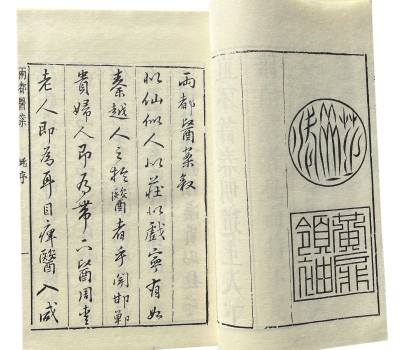 黃扉
領袖
兩都醫案敘
似仙似人似莊似戲寧有如
秦越人之於醫者乎聞邯鄲
貴婦人即為帶下醫周愛
老人即為耳目痺醫入咸
兩都醫案 姚序